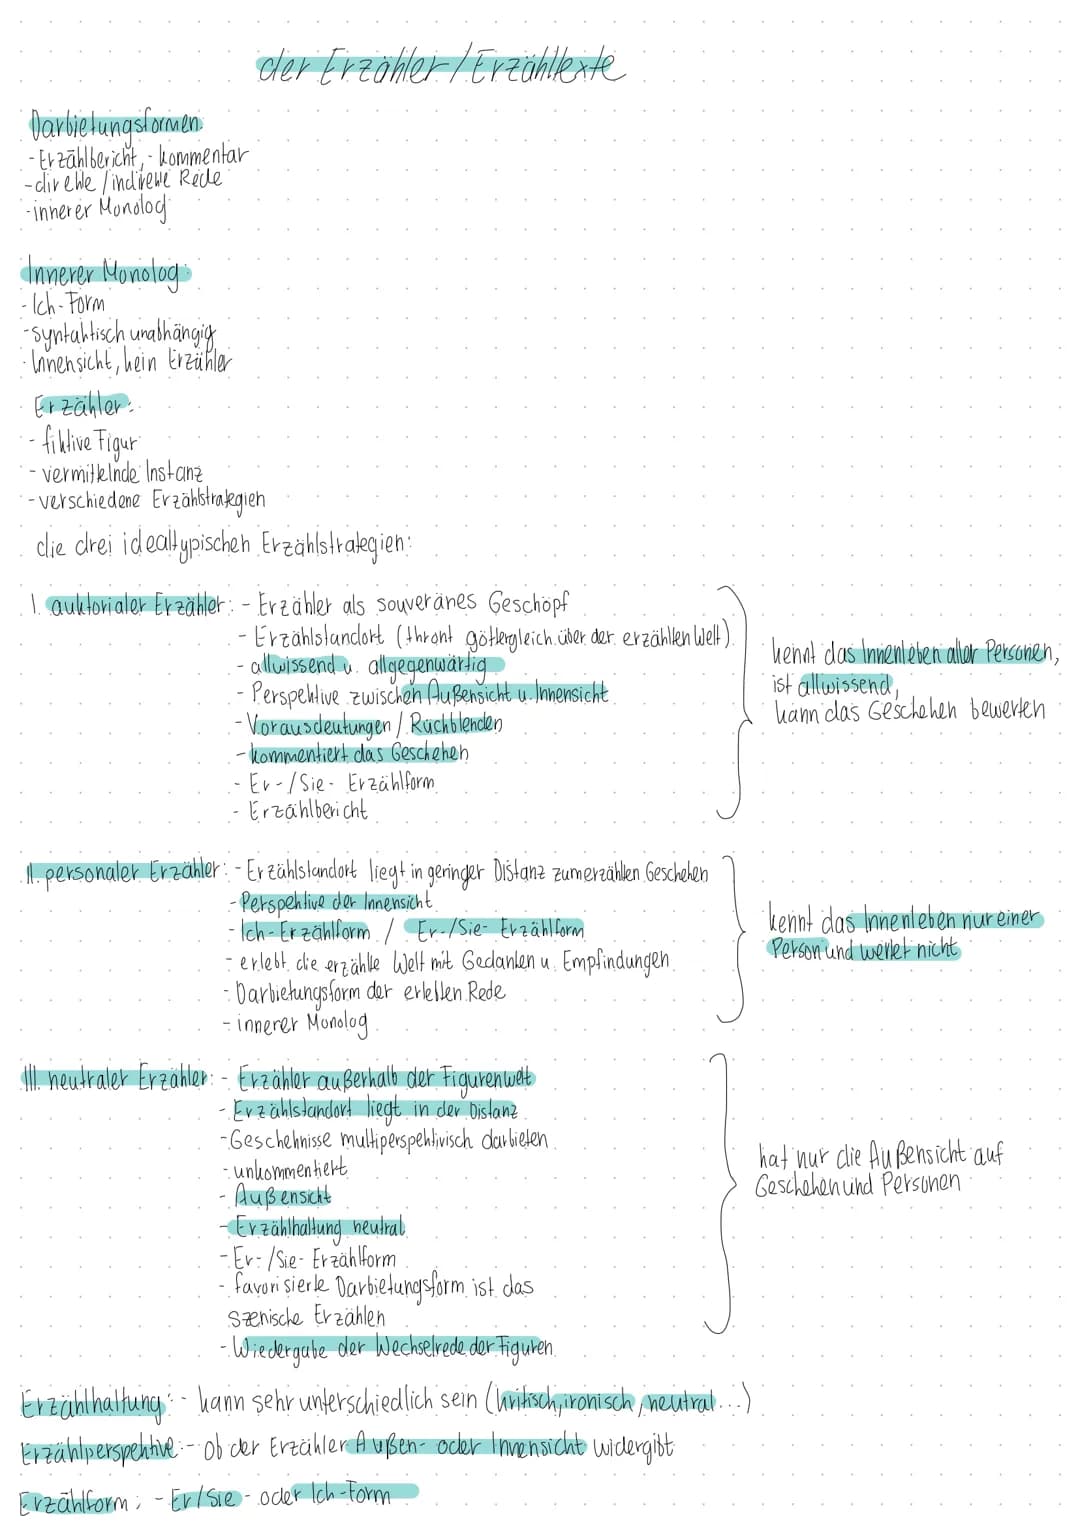 der Erzähler/Erzähltexte
Darbietungsformen:
- Erzählbericht, - kommentar
- direkte / indirekte Rede
- innerer Monolog
Innerer Monolog:
- Ich-Form
- syntaktisch unabhängig
- Innensicht, kein Erzähler
Erzähler:
- fiktive Figur
- vermittelnde Instanz
- verschiedene Erzählstrategien
die drei idealtypischen Erzählstrategien:
I. auktorialer Erzähler: - Erzähler als souveränes Geschöpf
- Erzählstandort (thront göttergleich über der erzählten Welt)
- allwissend u. allgegenwärtig
- Perspektive zwischen Außensicht u. Innensicht
- Vorausdeutungen / Rückblenden
- kommentiert das Geschehen
- Er-/Sie- Erzählform
- Erzählbericht
kennt das Innenleben aller Personen,
ist allwissend,
kann das Geschehen bewerten
II. personaler Erzähler: - Erzählstandort liegt in geringer Distanz zum erzählten Geschehen
- Perspektive der Innensicht
- Ich-Erzählform / Er-/Sie- Erzählform
- erlebt die erzählte Welt mit Gedanken u. Empfindungen
- Darbietungsform der erlebten Rede
- innerer Monolog
kennt das Innenleben nur einer
Person und wertet nicht
III. neutraler Erzähler: - Erzähler außerhalb der Figurenwelt
- Erzählstandort liegt in der Distanz
- Geschehnisse multiperspektivisch darbieten
- unkommentiert
- Außensicht
- Erzählhaltung neutral
- Er-/Sie- Erzählform
- favorisierte Darbietungsform ist das
szenische Erzählen
- Wiedergabe der Wechselrede der Figuren
hat nur die Außensicht auf
Geschehen und Personen
Erzählhaltung: - kann sehr unterschiedlich sein (kritisch, ironisch, neutral...)
Erzählperspektive: - ob der Erzähler Außen- oder Innensicht widergibt
Erzählform: - Er/Sie - oder Ich-Form